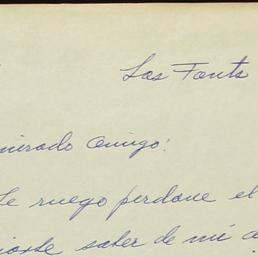 Las Fonts
mirado amigo:
Le ruego perdone el
saber de mi